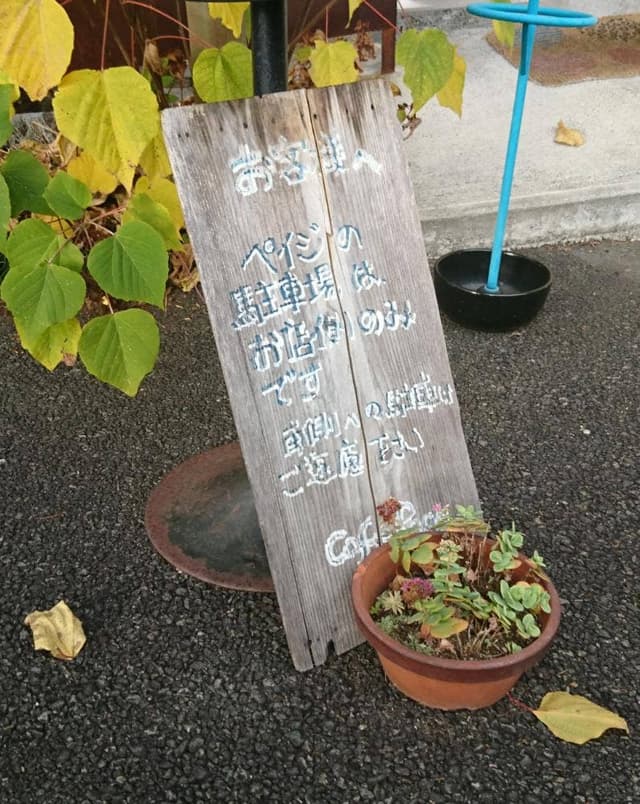 お客様へ
ペイジの
駐車場は
お店側のみ
です
側への駐車は
ご遠慮下さい